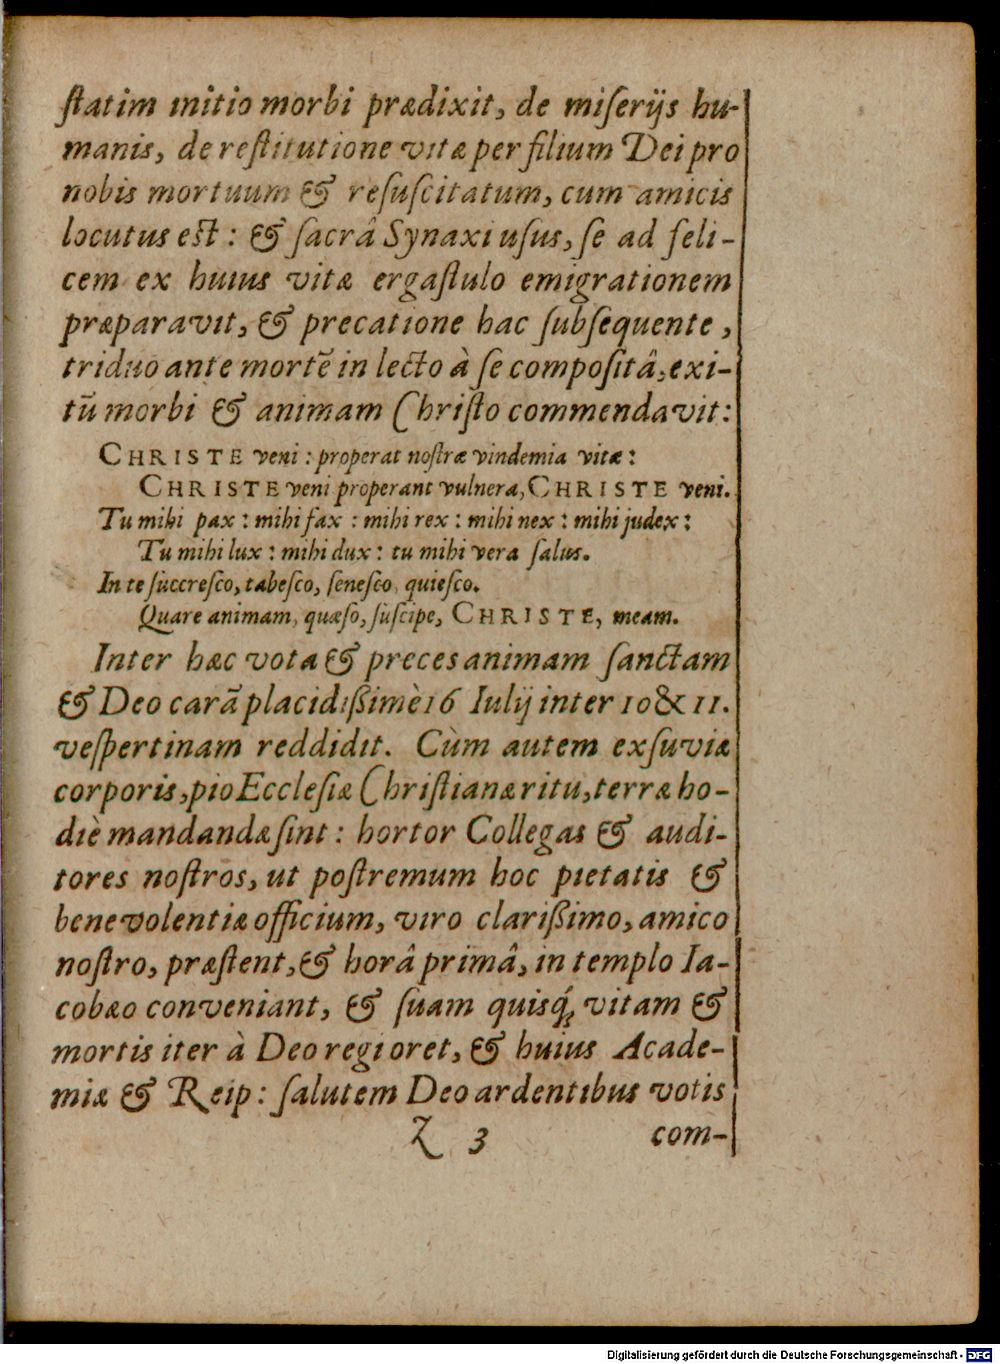 ſtatim initio morbi prædixit, de miſerijs hu-
manis, de reſtitutione vitæ per filium Dei pro
nobis mortuum & reſuſcitatum, cum amicis
locutus eſt: & ſacrâ Synaxi uſus, ſe ad feli-
cem ex huius vitæ ergaſtulo emigrationem
præparavit, & precatione hac ſubſequente,
triduo ante mortẽ in lecto à ſe compoſitâ, exi-
tũ morbi & animam Chriſto commendavit:
CHRISTE veni: properat noſtræ vindemia vitæ:
CHRISTE veni properant vulnera, CHRISTE veni.
Tu mihi pax: mihi fax: mihi rex: mihi nex: mihi judex:
Tu mihi lux: mihi dux: tu mihi vera ſalus.
In te ſuccreſco, tabeſco, ſeneſco, quieſco.
Quare animam, quæſo, ſuſcipe, CHRISTE, meam.
Inter hæc vota & preces animam ſanctam
& Deo carã placidißimè 16 Iulij inter 10 & 11.
veſpertinam reddidit. Cùm autem exſuviæ
corporis, pio Eccleſiæ Chriſtianæ ritu, terræ ho-
diè mandandæ ſint: hortor Collegas & audi-
tores noſtros, ut poſtremum hoc pietatis &
benevolentiæ officium, viro clarißimo, amico
noſtro, præſtent, & horâ primâ, in templo Ia-
cobæo conveniant, & ſuam quisq́; vitam &
mortis iter à Deo regi oret, & huius Acade-
miæ & Reip: ſalutem Deo ardentibus votis
Z 3 com-
Digitalisierung gefördert durch die Deutsche Forschungsgemeinschaft - DFG